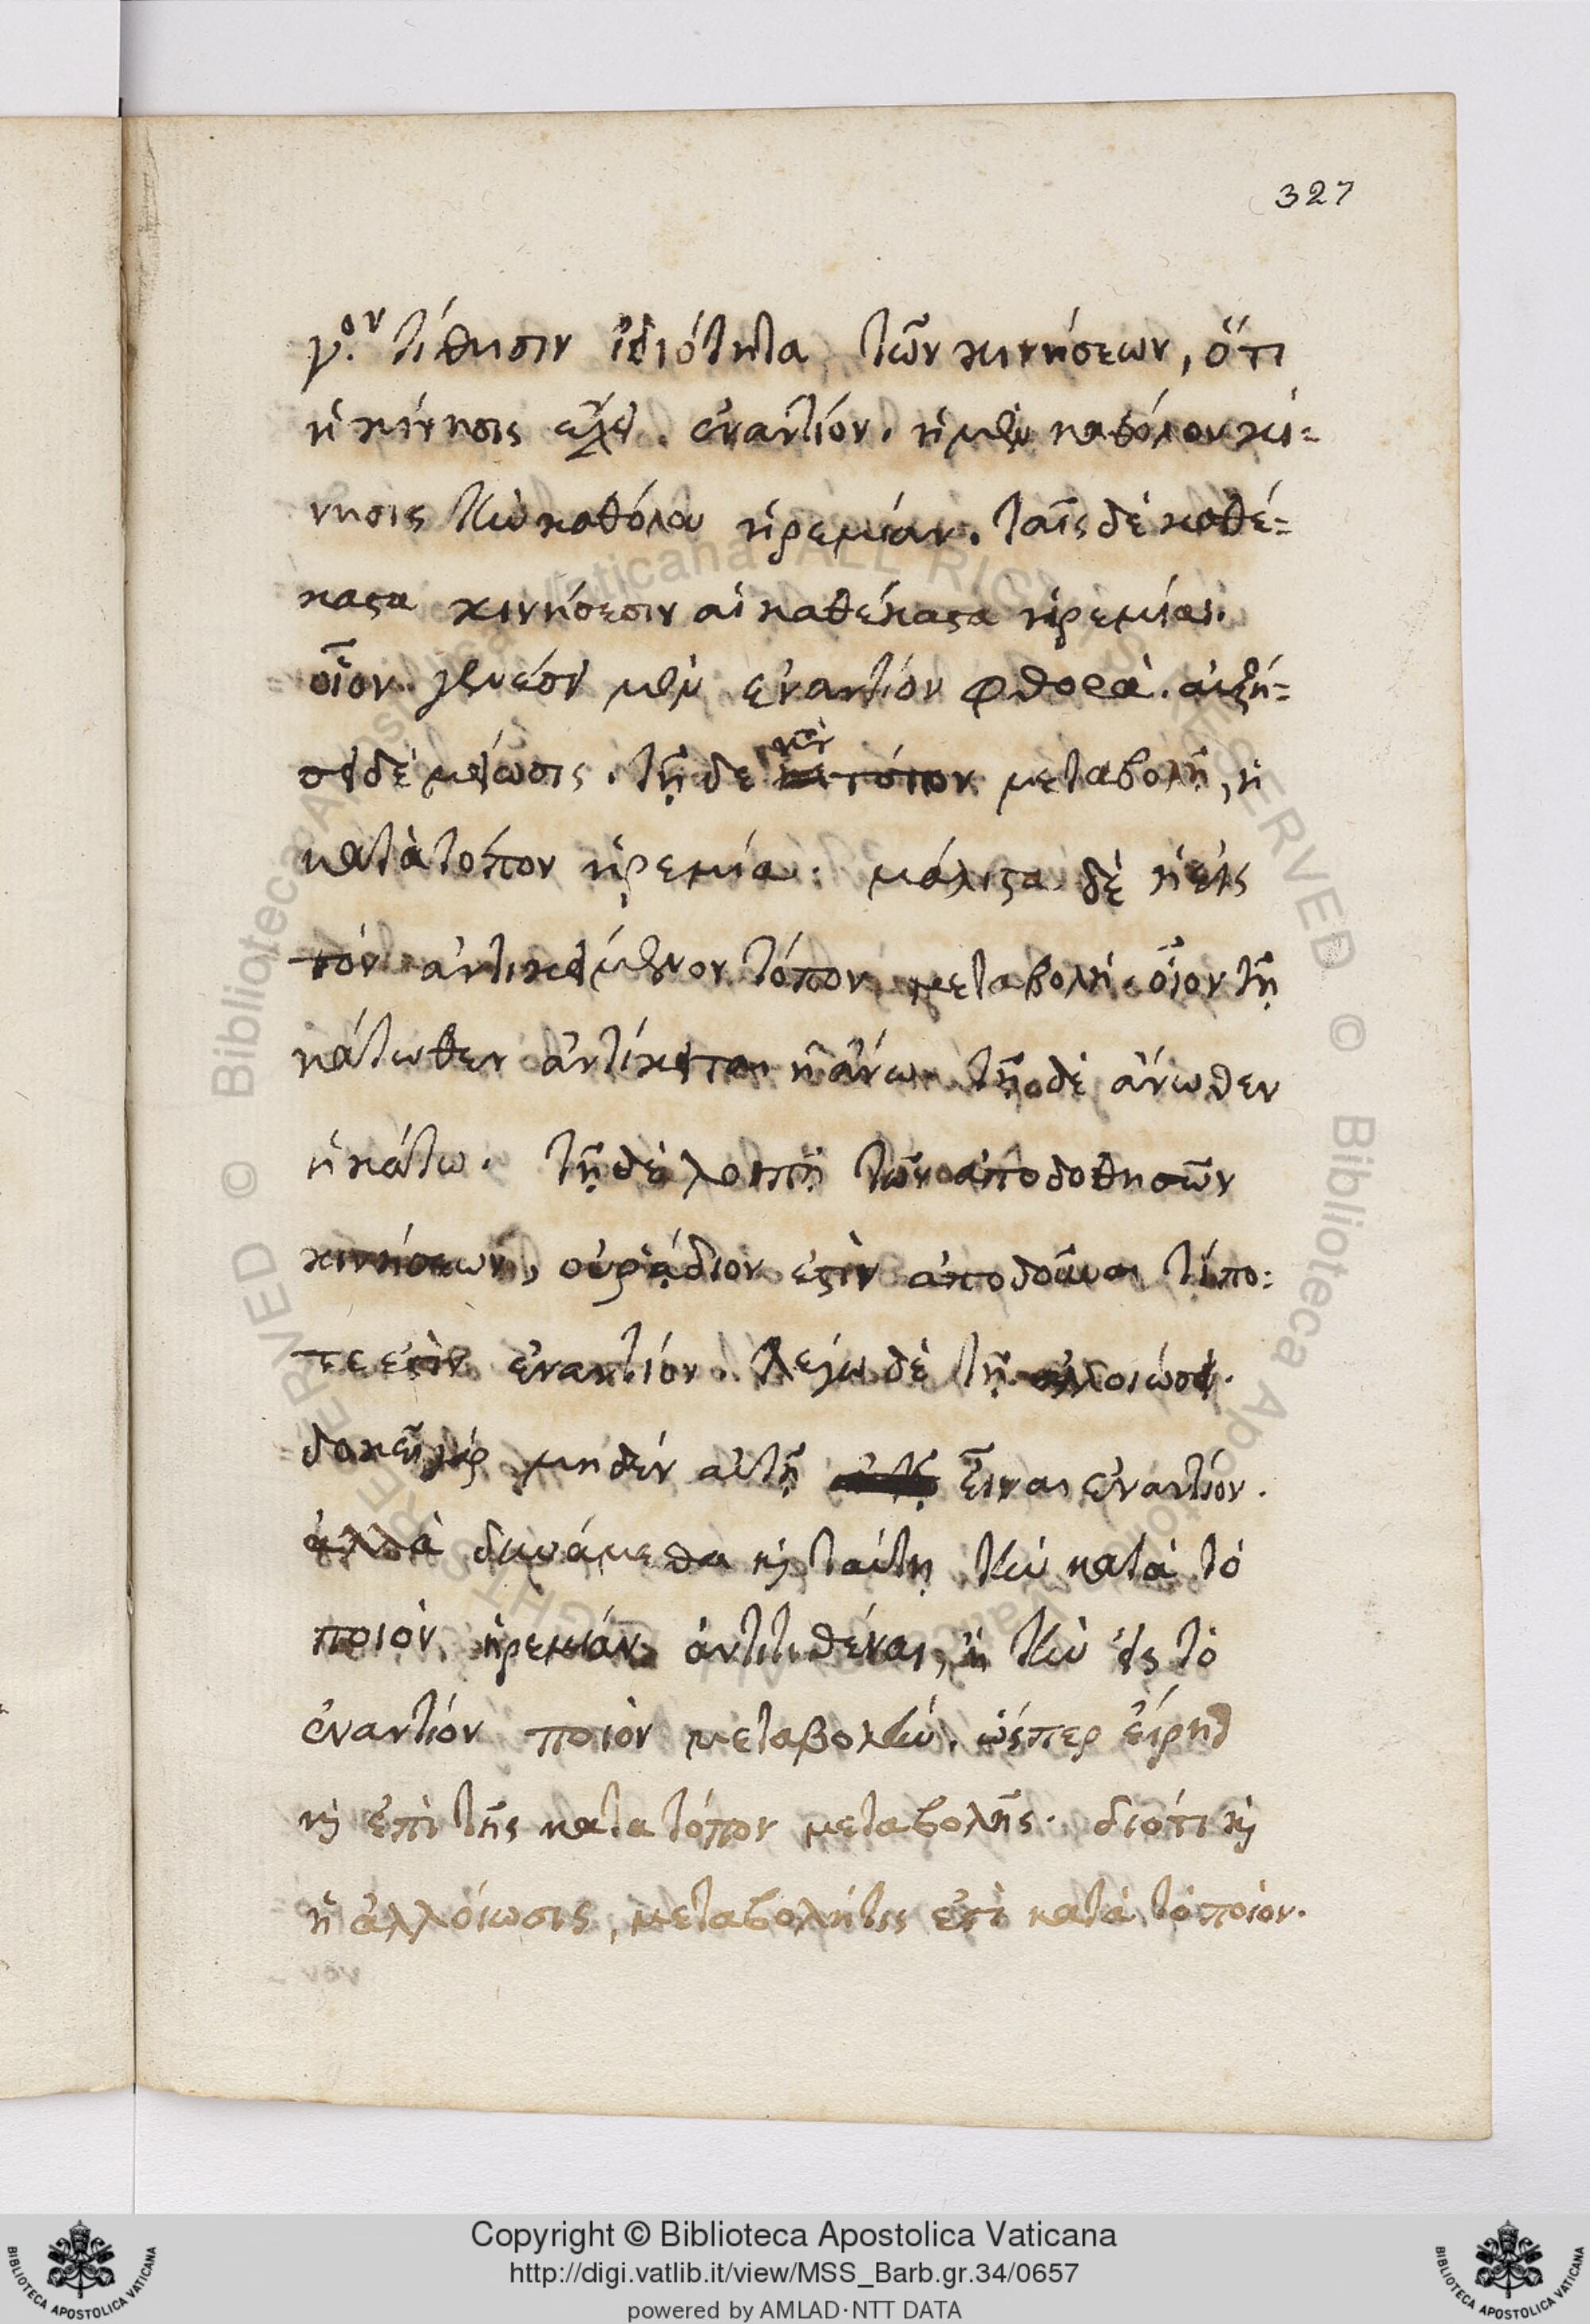 327
γ.ον τίθησιν ἰδιότητα τῶν κινήσεων, ὅτι
ἡ κίνησις ἔχει ἐναντίον. ἡ μὲν καθόλου κί=
νησις τὴν καθόλου ἠρεμίαν. ταῖς δὲ καθέ=
καστα κινήσεσιν αἱ καθέκαστα ἠρεμίαι.
οἷον γενέσει μὲν ἐναντίον φθορά. αὐξή=
σει δὲ μείωσις. τῇ δὲ κατὰ τόπον μεταβολῇ, ἡ
κατὰ τόπον ἠρεμία. μάλιστα δὲ ἡ εἰς
τὸν ἀντικείμενον τόπον μεταβολή. οἷον τῇ
κάτωθεν ἀντίκειται ἡ ἄνω. τῇ δὲ ἄνωθεν
ἡ κάτω. τῇ δὲ λοιπῇ τῶν ἀποδοθησῶν
κινήσεων, οὐ ῥάδιον ἐστὶν ἀποδοῦναι τί πο=
τε ἐστὶν ἐναντίον. λέγω δὲ τῇ ἀλλοιώσει.
δοκεῖ γὰρ μηδὲν αὐτῇ εἶναι ἐναντίον.
ἀλλὰ δυνάμεθα καὶ ταύτῃ τὴν κατὰ τὸ
ποιὸν ἠρεμίαν ἀντιτιθέναι, ἢ τὴν εἰς τὸ
ἐναντίον ποιὸν μεταβολὴν. ὥσπερ εἴρηται
καὶ ἐπὶ τῆς κατα τόπον μεταβολῆς. διότι καὶ
ἡ ἀλλοίωσις, μεταβολή τις ἐστὶ κατὰ τὸ ποιόν.
Copyright © Biblioteca Apostolica Vaticana
http://digi.vatlib.it/view/MSS_Barb.gr.34/0657
powered by AMLAD·NTT DATA
BIBLIOTECA APOSTOLICA VATICANA
BIBLIOTECA APOSTOLICA VATICANA